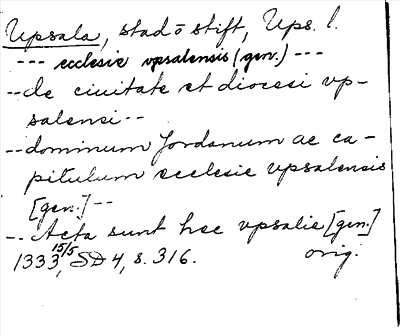 Upsala, stad o stift, Ups. l.
--- ecclesie vpsalensis (gen.) ---
-- de ciuitate et diocesi vp-
salensi --
-- dominum Jordanum ac ca-
pitulum ecclesie vpsalensis
[gen.] --
-- Acta sunt hec vpsalie [gen.]
1333 15/5, SD 4, s. 316. orig.